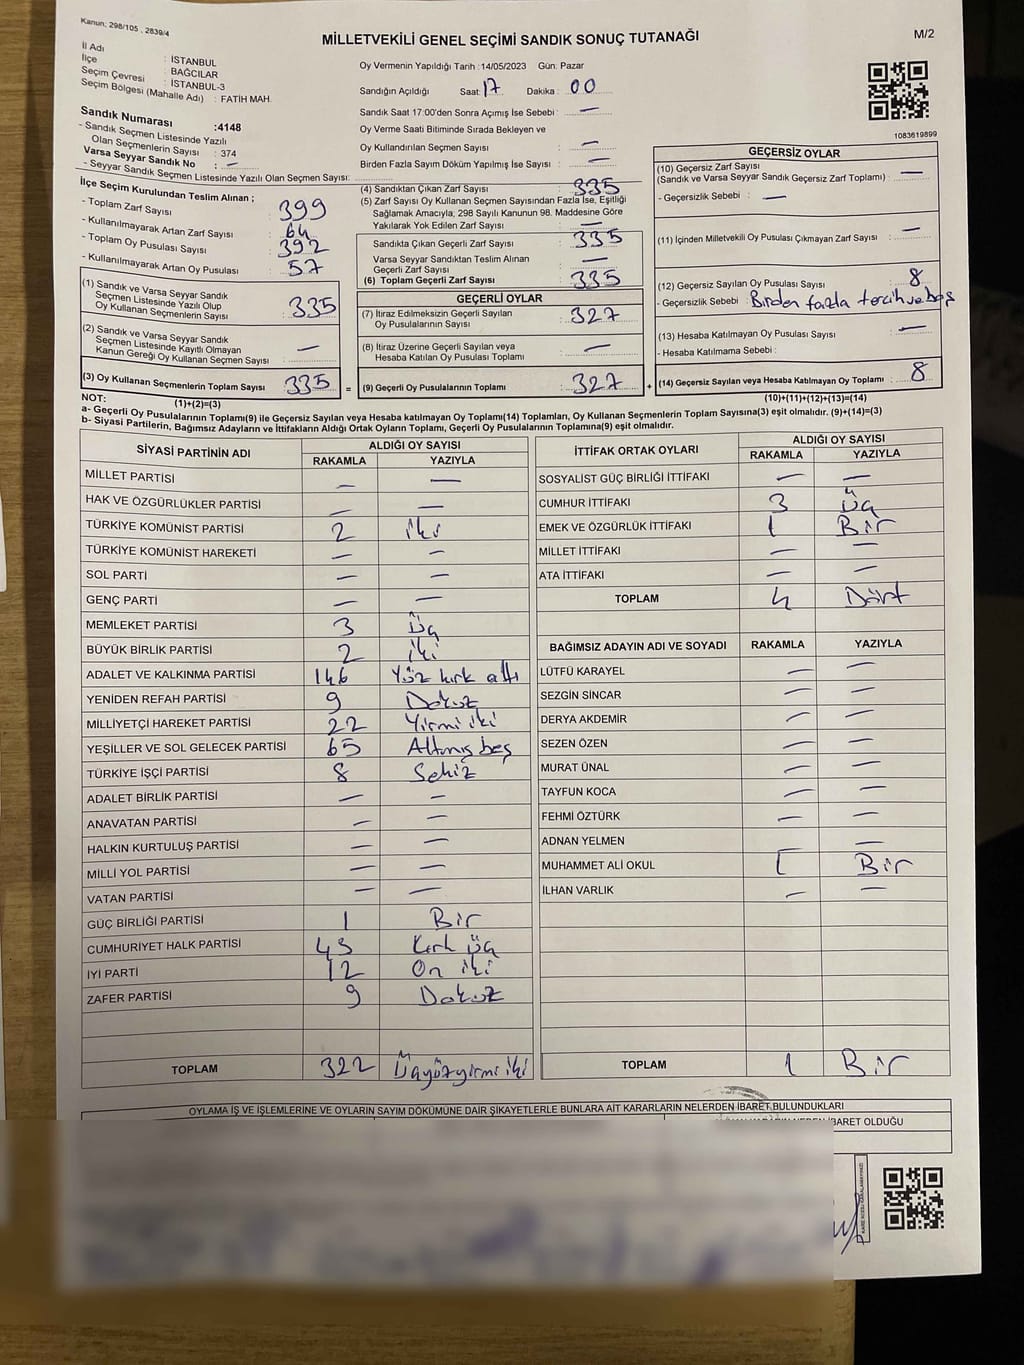 Kanun: 298/105 , 2839/4
MİLLETVEKİLİ GENEL SEÇİMİ SANDIK SONUÇ TUTANAĞI
M/2
İl Adı : İSTANBUL
İlçe : BAĞCILAR
Seçim Çevresi : İSTANBUL-3
Seçim Bölgesi (Mahalle Adı) : FATİH MAH.
Sandık Numarası :4148
- Sandık Seçmen Listesinde Yazılı
Olan Seçmenlerin Sayısı : 374
Varsa Seyyar Sandık No : —
- Seyyar Sandık Seçmen Listesinde Yazılı Olan Seçmen Sayısı:
Oy Vermenin Yapıldığı Tarih :14/05/2023 Gün: Pazar
Sandığın Açıldığı Saat: 17 Dakika: 00
Sandık Saat 17:00'den Sonra Açımış İse Sebebi : —
Oy Verme Saati Bitiminde Sırada Bekleyen ve
Oy Kullandırılan Seçmen Sayısı : —
Birden Fazla Sayım Döküm Yapılmış İse Sayısı : —
1083619899
İlçe Seçim Kurulundan Teslim Alınan ;
- Toplam Zarf Sayısı : 399
- Kullanılmayarak Artan Zarf Sayısı : 64
- Toplam Oy Pusulası Sayısı : 392
- Kullanılmayarak Artan Oy Pusulası : 57
(1) Sandık ve Varsa Seyyar Sandık
Seçmen Listesinde Yazılı Olup
Oy Kullanan Seçmenlerin Sayısı : 335
(2) Sandık ve Varsa Seyyar Sandık
Seçmen Listesinde Kayıtlı Olmayan
Kanun Gereği Oy Kullanan Seçmen Sayısı : —
(3) Oy Kullanan Seçmenlerin Toplam Sayısı : 335
(1)+(2)=(3)
(4) Sandıktan Çıkan Zarf Sayısı : 335
(5) Zarf Sayısı Oy Kullanan Seçmen Sayısından Fazla İse, Eşitliği
Sağlamak Amacıyla, 298 Sayılı Kanunun 98. Maddesine Göre
Yakılarak Yok Edilen Zarf Sayısı : —
Sandıkta Çıkan Geçerli Zarf Sayısı : 335
Varsa Seyyar Sandıktan Teslim Alınan
Geçerli Zarf Sayısı : —
(6) Toplam Geçerli Zarf Sayısı : 335
GEÇERLİ OYLAR
(7) İtiraz Edilmeksizin Geçerli Sayılan
Oy Pusulalarının Sayısı : 327
(8) İtiraz Üzerine Geçerli Sayılan veya
Hesaba Katılan Oy Pusulası Toplamı : —
= (9) Geçerli Oy Pusulalarının Toplamı : 327 +
GEÇERSİZ OYLAR
(10) Geçersiz Zarf Sayısı
(Sandık ve Varsa Seyyar Sandık Geçersiz Zarf Toplamı) : —
- Geçersizlik Sebebi : —
(11) İçinden Milletvekili Oy Pusulası Çıkmayan Zarf Sayısı : —
(12) Geçersiz Sayılan Oy Pusulası Sayısı : 8
- Geçersizlik Sebebi : Birden fazla tercih ve boş
(13) Hesaba Katılmayan Oy Pusulası Sayısı : —
- Hesaba Katılmama Sebebi :
(14) Geçersiz Sayılan veya Hesaba Katılmayan Oy Toplamı : 8
(10)+(11)+(12)+(13)=(14)
NOT:
a- Geçerli Oy Pusulalarının Toplamı(9) ile Geçersiz Sayılan veya Hesaba katılmayan Oy Toplamı(14) Toplamları, Oy Kullanan Seçmenlerin Toplam Sayısına(3) eşit olmalıdır. (9)+(14)=(3)
b- Siyasi Partilerin, Bağımsız Adayların ve İttifakların Aldığı Ortak Oyların Toplamı, Geçerli Oy Pusulalarının Toplamına(9) eşit olmalıdır.
SİYASİ PARTİNİN ADI ALDIĞI OY SAYISI
RAKAMLA YAZIYLA
MİLLET PARTİSİ — —
HAK VE ÖZGÜRLÜKLER PARTİSİ — —
TÜRKİYE KOMÜNİST PARTİSİ 2 iki
TÜRKİYE KOMÜNİST HAREKETİ — —
SOL PARTİ — —
GENÇ PARTİ — —
MEMLEKET PARTİSİ 3 Üç
BÜYÜK BİRLİK PARTİSİ 2 iki
ADALET VE KALKINMA PARTİSİ 146 Yüz kırk altı
YENİDEN REFAH PARTİSİ 9 Dokuz
MİLLİYETÇİ HAREKET PARTİSİ 22 Yirmi iki
YEŞİLLER VE SOL GELECEK PARTİSİ 65 Altmış beş
TÜRKİYE İŞÇİ PARTİSİ 8 Sekiz
ADALET BİRLİK PARTİSİ — —
ANAVATAN PARTİSİ — —
HALKIN KURTULUŞ PARTİSİ — —
MİLLİ YOL PARTİSİ — —
VATAN PARTİSİ — —
GÜÇ BİRLİĞİ PARTİSİ 1 Bir
CUMHURİYET HALK PARTİSİ 43 Kırk üç
İYİ PARTİ 12 On iki
ZAFER PARTİSİ 9 Dokuz
TOPLAM 322 Üçyüzyirmi iki
İTTİFAK ORTAK OYLARI ALDIĞI OY SAYISI
RAKAMLA YAZIYLA
SOSYALİST GÜÇ BİRLİĞİ İTTİFAKI — —
CUMHUR İTTİFAKI 3 Üç
EMEK VE ÖZGÜRLÜK İTTİFAKI 1 Bir
MİLLET İTTİFAKI — —
ATA İTTİFAKI — —
TOPLAM 4 Dört
BAĞIMSIZ ADAYIN ADI VE SOYADI RAKAMLA YAZIYLA
LÜTFÜ KARAYEL — —
SEZGİN SİNCAR — —
DERYA AKDEMİR — —
SEZEN ÖZEN — —
MURAT ÜNAL — —
TAYFUN KOCA — —
FEHMİ ÖZTÜRK — —
ADNAN YELMEN —
MUHAMMET ALİ OKUL 1 Bir
İLHAN VARLIK — —
TOPLAM 1 Bir
OYLAMA İŞ VE İŞLEMLERİNE VE OYLARIN SAYIM DÖKÜMÜNE DAİR ŞİKAYETLERLE BUNLARA AİT KARARLARIN NELERDEN İBARET BULUNDUKLARI
İBARET OLDUĞU